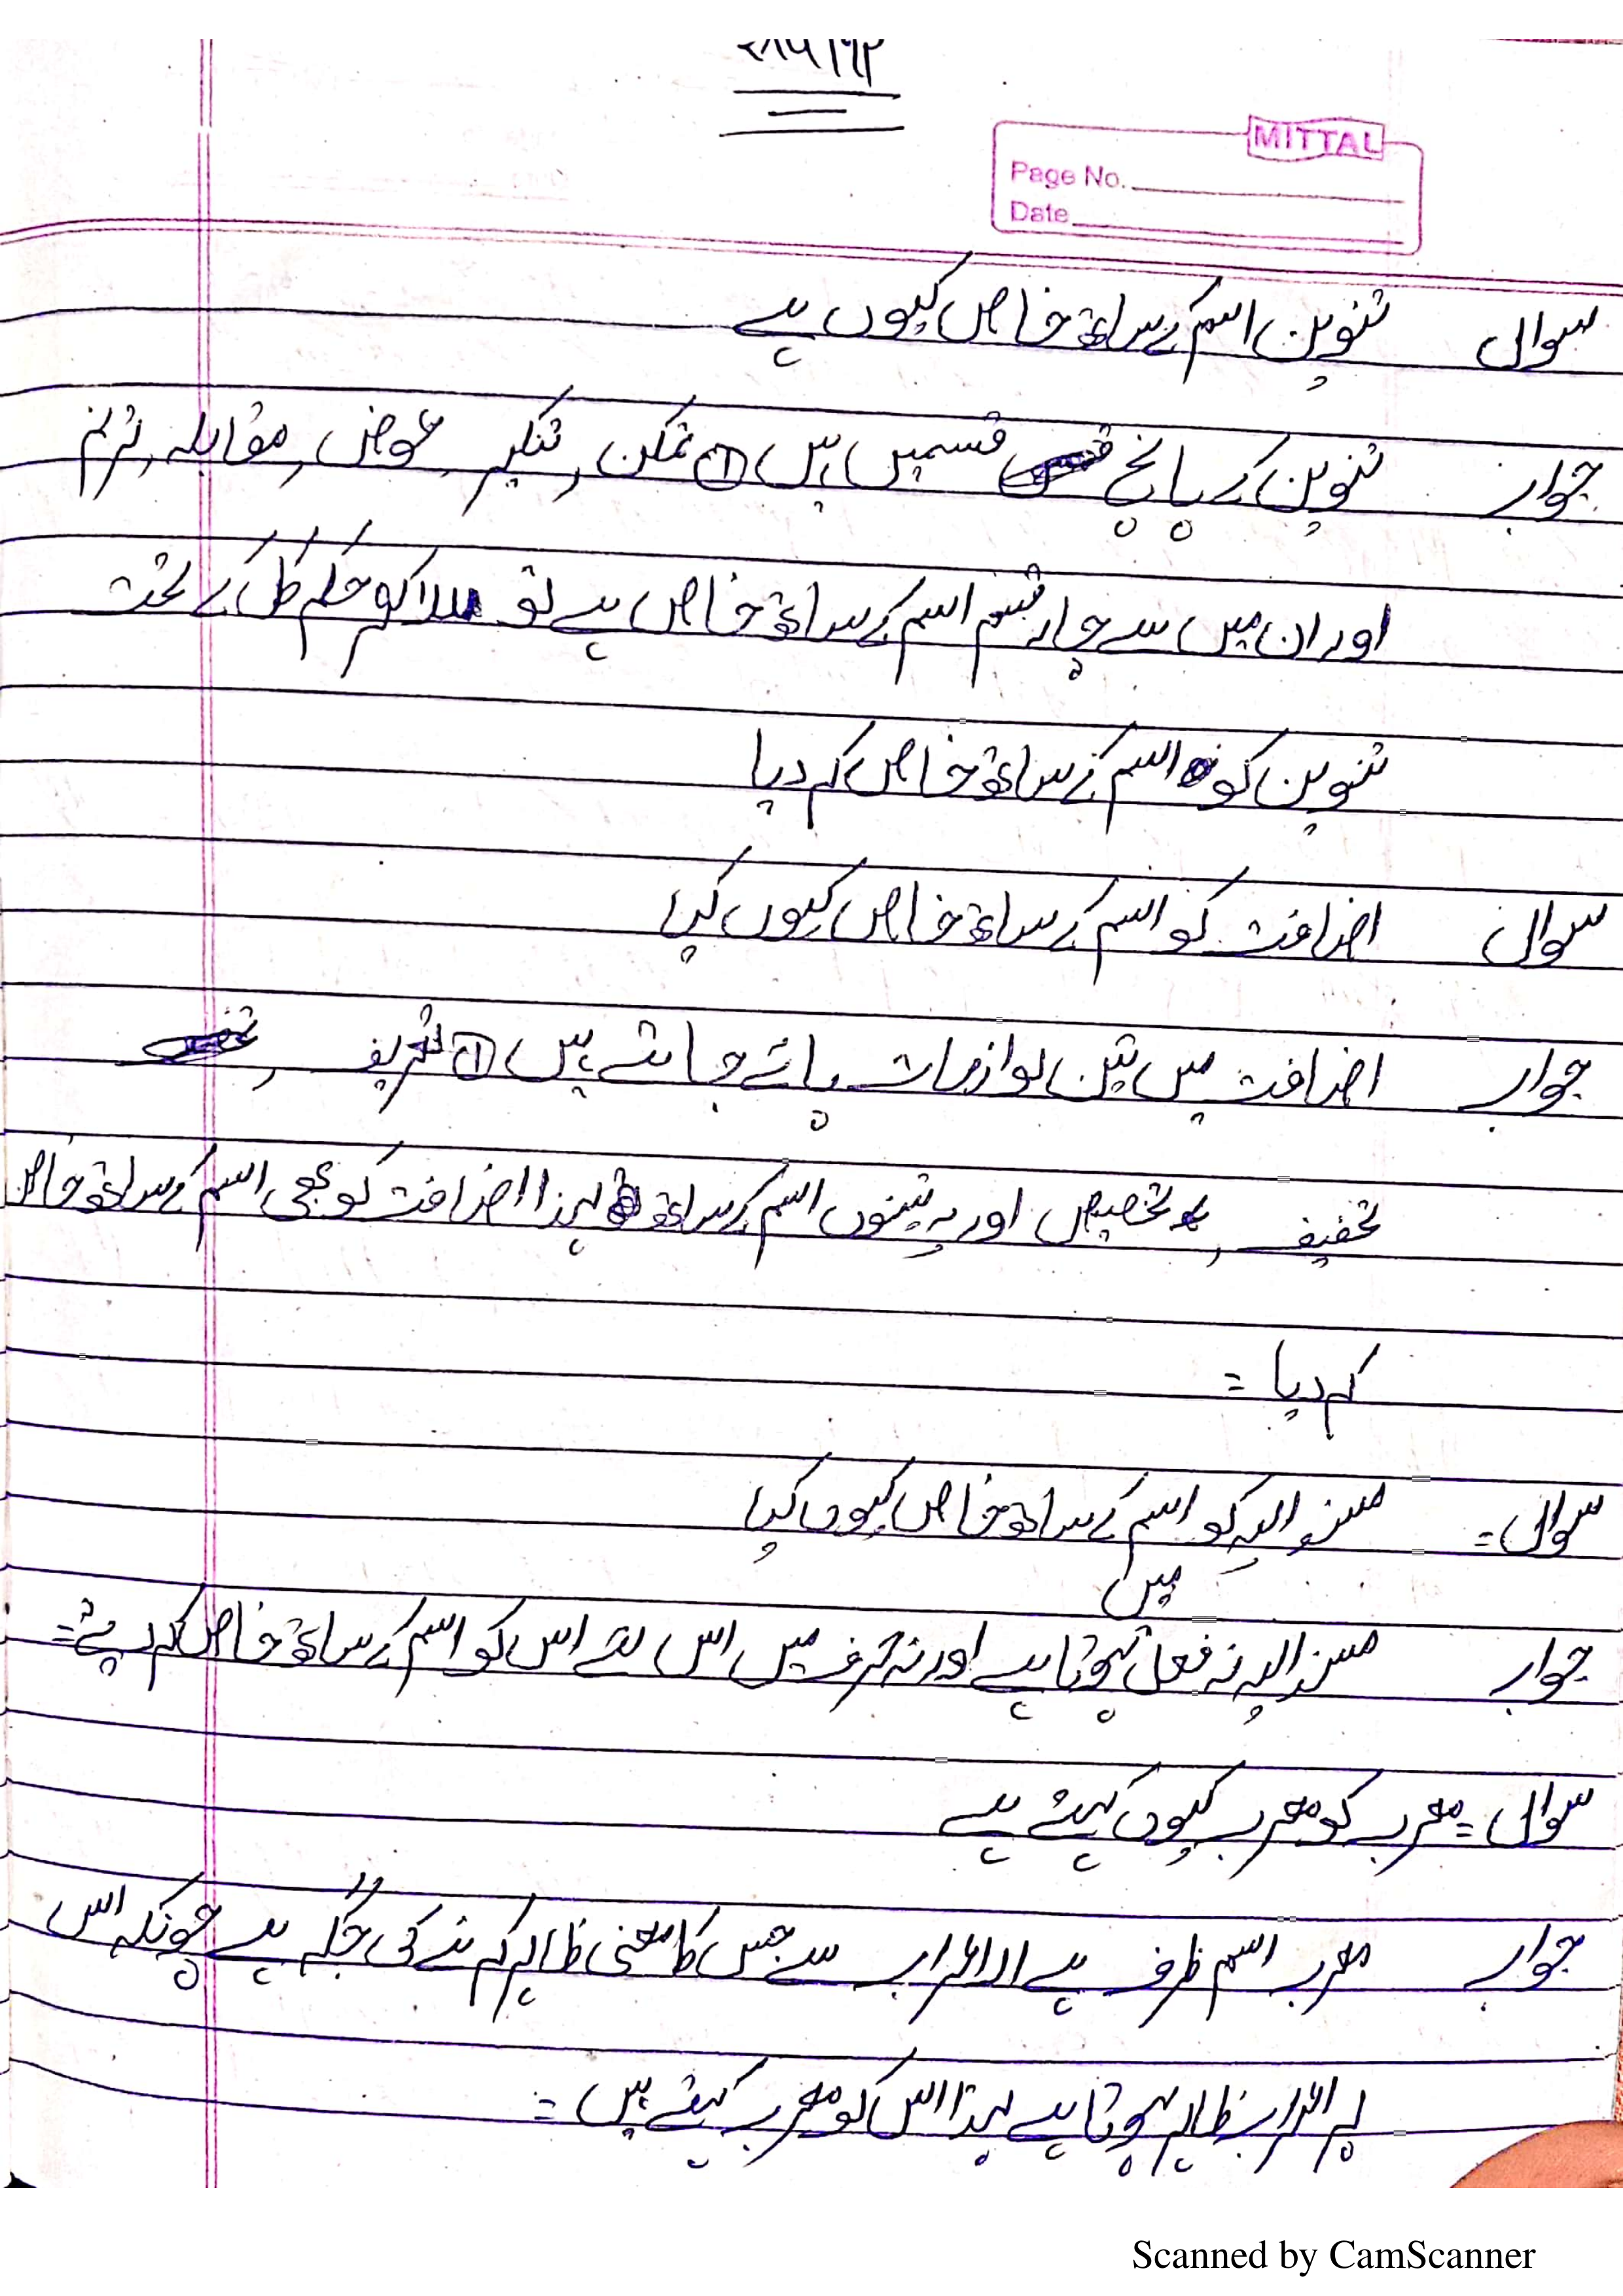 MITTAL
Page No.
Date
سوال تنوین اسم کے ساتھ خاص کیوں ہے
جواب تنوین کے پانچ قسمیں ہیں ① تمکن، تنکیر، عوض، مقابلہ، ترنم
اور ان میں سے چار قسم اسم کے ساتھ خاص ہے تو للاکثر حکم کل کے تحت
تنوین کو اسم کے ساتھ خاص کر دیا
سوال اضافت کو اسم کے ساتھ خاص کیوں کیا
جواب اضافت میں تین لوازمات پائے جاتے ہیں ① تعریف،
تخفیف، تخصیص اور یہ تینوں اسم کے ساتھ لہذا اضافت کو بھی اسم کے ساتھ خاص
کر دیا =
سوال = مسند الیہ کو اسم کے ساتھ خاص کیوں کیا
جواب مسند الیہ نہ فعل میں ہوتا ہے اور نہ حرف میں اس لئے اس کو اسم کے ساتھ خاص کر دیئے =
سوال = معرب کو معرب کیوں کہتے ہے
جواب معرب اسم ظرف ہے اعراب سے جس کا معنی ظاہر کرنے کی جگہ ہے چونکہ اس
پر اعراب ظاہر ہوتا ہے لہذا اس کو معرب کہتے ہیں =
Scanned by CamScanner